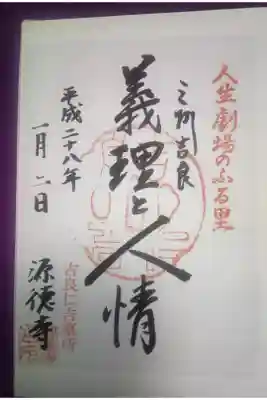 人生劇場のふる里
三州吉良
義理と人情
平成二十八年
一月二日
吉良仁吉菩提所
源徳寺